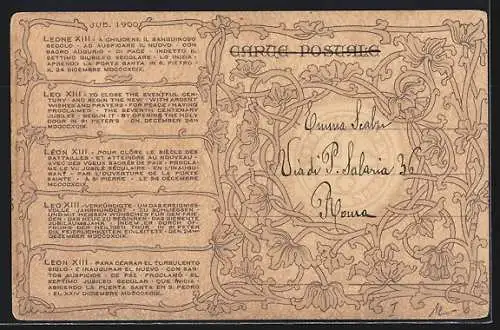 JUB. 1900
LEONE XIII - A CHIUDERE IL SANGUINOSO
SECOLO - AD AUSPICARE IL NUOVO - CON
SACRO AUGURIO - DI PACE - INDETTO IL
SETTIMO GIUBILEO SECOLARE - LO INIZIA -
APRENDO LA PORTA SANTA IN S. PIETRO -
IL 24 DICEMBRE MDCCCXCIX.
LEO XIII - TO CLOSE THE EVENTFUL CEN-
TURY - AND BEGIN THE NEW - WITH ARDENT
WISHES AND PRAYERS - FOR PEACE / HAVING
PROCLAIMED - THE SEVENTH CENTENARY
JUBILEE - BEGUN IT - BY OPENING THE HOLY
DOOR IN ST PETER'S - ON DECEMBER 24TH
MDCCCXCIX.
LÉON XIII - POUR CLÔRE LE SIÈCLE DES
BATTAILLES - ET ATTEINDRE AU NOUVEAU -
AVEC DES VŒUX SACRÉS DE PAIX - PROCLA-
ME LE VII JUBILÉ SÉCULAIRE - EN L'INAUGU-
RANT - PAR L'OUVERTURE DE LA PORTE
SAINTE - À ST PIERRE - LE 24 DÉCEMBRE
MDCCCXCIX.
LEO XIII - VERKÜNDIGTE - UM DAS EREIGNIS-
VOLLE JAHRHUNDERT - ZU SCHLIESSEN -
UND MIT HEISSEN WÜNSCHEN FÜR DEN FRIE-
DEN - DAS NEUE ZU BEGINNEN - DAS SIEBENTE
JUBILÄUMSJAHR - INDEM ER DURCH ÖF-
FNUNG DER HEILIGEN THÜR IN ST PETER
DIE FEIERLICHKEITEN EINLEITETE - DEN 24TEN
DEZEMBER MDCCCXCIX.
LEON XIII - PARA CERRAR EL TURBULENTO
SIGLO - É INAUGURAR EL NUEVO - CON SAN-
TOS AUSPICIOS - DE PAZ - PROCLAMÓ - EL
SEPTIMO JUBILEO SECULAR - QUE INICIA -
ABRIENDO LA PUERTA SANTA EN S. PEDRO -
EL XXIV DICIEMBRE MDCCCXCIX.
CARTE POSTALE
Via di P. Salaria 36
Roma